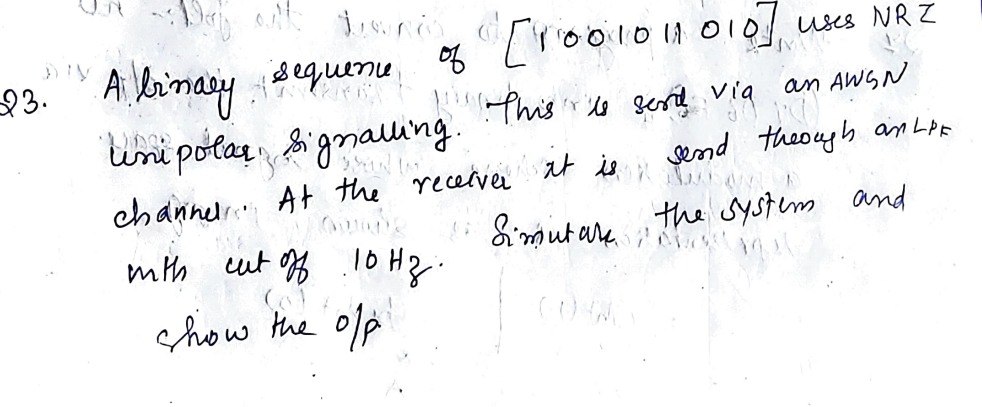 23. A binary sequence of [1001011010] uses NRZ
unipolar signalling. This is send via an AWGN
channel. At the receiver it is send through an LPF
with cut off 10 Hz. Simulate the system and
show the o/p